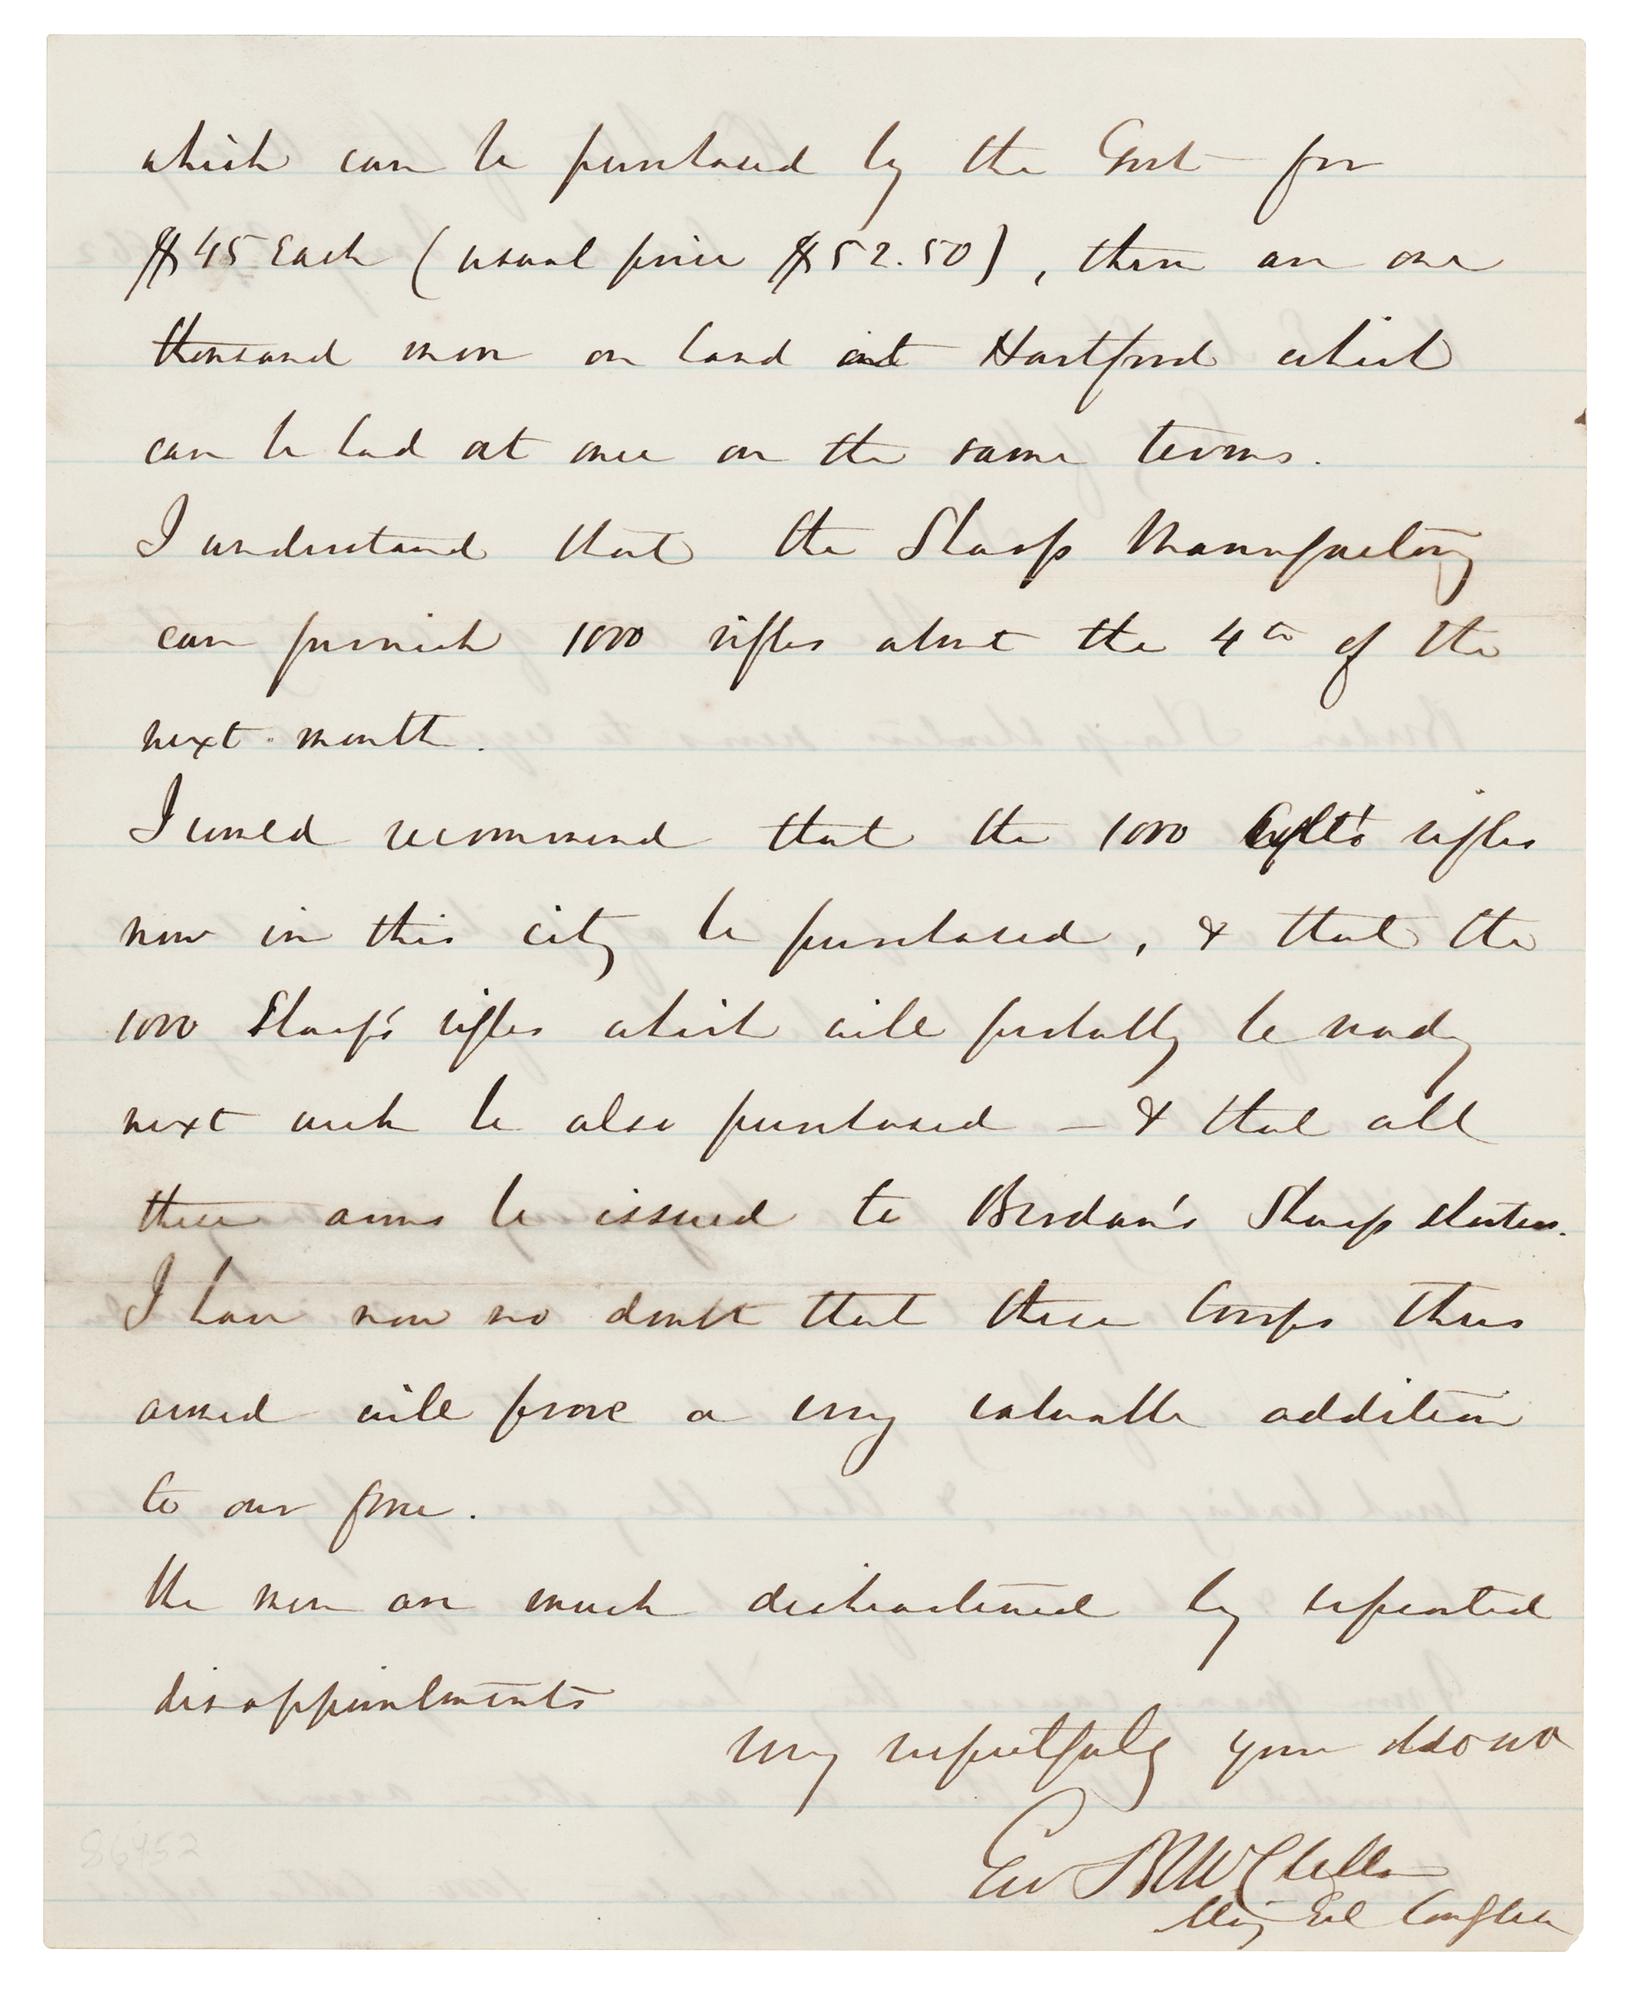 which can be purchased by the Govt for
$45 Each (usual price $52.50), there are one
thousand more on hand at Hartford which
can be had at once on the same terms.
I understand that the Sharp Manufactory
can furnish 1000 rifles about the 4th of the
next month.
I would recommend that the 1000 Colt's rifles
now in this city be purchased, & that the
1000 Sharp's rifles which will probably be ready
next week be also purchased — & that all
these arms be issued to Berdan's Sharp shooters.
I have now no doubt that these Corps thus
armed will prove a very valuable addition
to our force.
The men are much disheartened by repeated
disappointments
Very respectfully your obdt svt
Geo B McClellan
Maj Genl Comg USA
86452